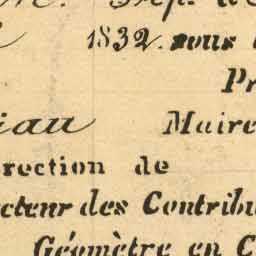 1832. sous
Pr
iau Maire
rection de
cteur des Contribu
Géomètre en C